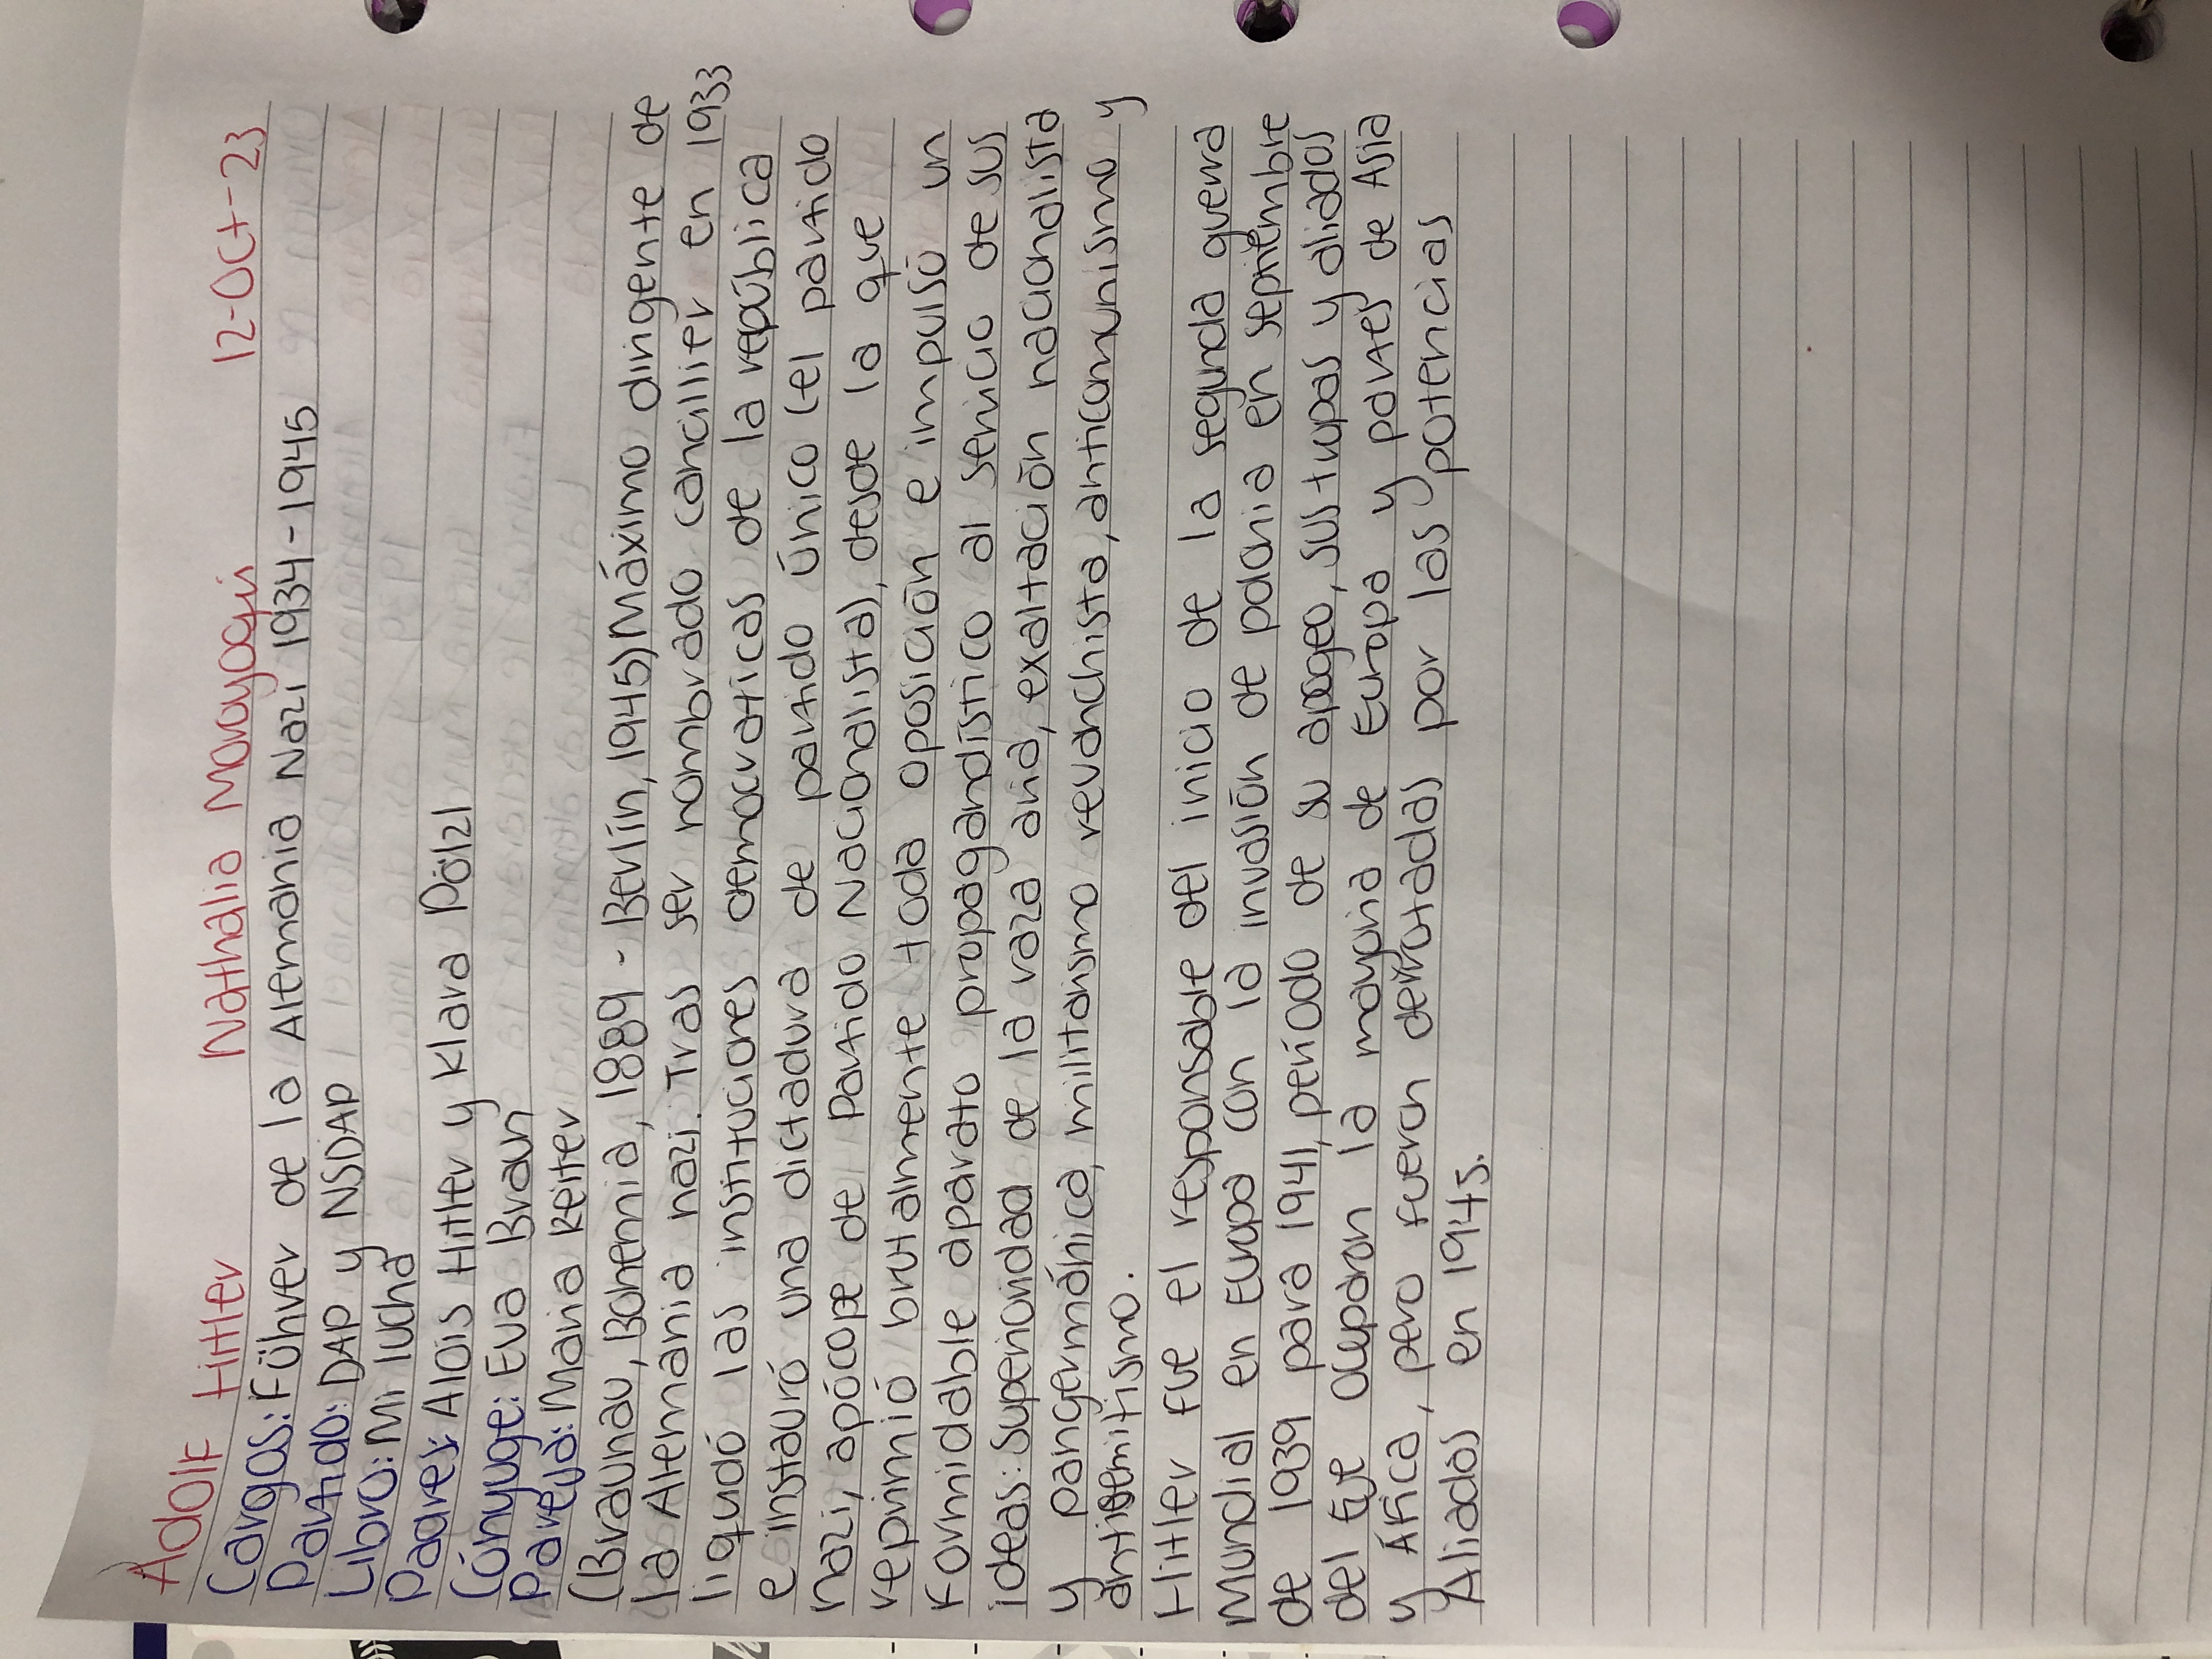 Adolf Hitler Nathalia Monoyogui 12-Oct-23
Cargos: Führer de la Alemania Nazi 1934-1945
Partido: DAP y NSDAP
Libro: Mi lucha
Padres: Alois Hitler y Klara Pölzl
Cónyuge: Eva Braun
Pareja: Maria Reiter
(Braunau, Bohemia, 1889 - Berlín, 1945) Máximo dirigente de
la Alemania nazi. Tras ser nombrado cancillier en 1933
liquidó las instituciones democraticas de la república
e instauró una dictadura de partido único (el partido
nazi, apócope de Partido Nacionalista), desde la que
reprimió brutalmente toda oposición e impulsó un
formidable aparato propagandístico al servicio de sus
ideas: superioridad de la raza aria, exaltación nacionalista
y pangermánica, militarismo revanchista, anticomunismo y
antisemitismo.
Hitler fue el responsable del inicio de la segunda guerra
Mundial en Europa con la invasión de polonia en septiembre
de 1939 para 1941, período de su apogeo, sus tropas y aliados
del Eje ocuparon la mayoria de Europa y partes de Asia
y África, pero fueron derrotadas por las potencias
Aliados en 1945.